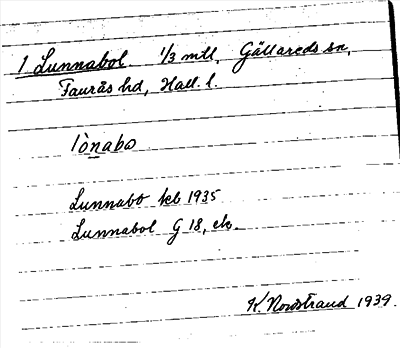 1 Lunnabol 1/3 mtl, Gällareds sn,
Faurås hd, Hall. l.
lònabo
Lunnabo kb 1935
Lunnabol G 18, ek.
K. Nordstrand 1939.